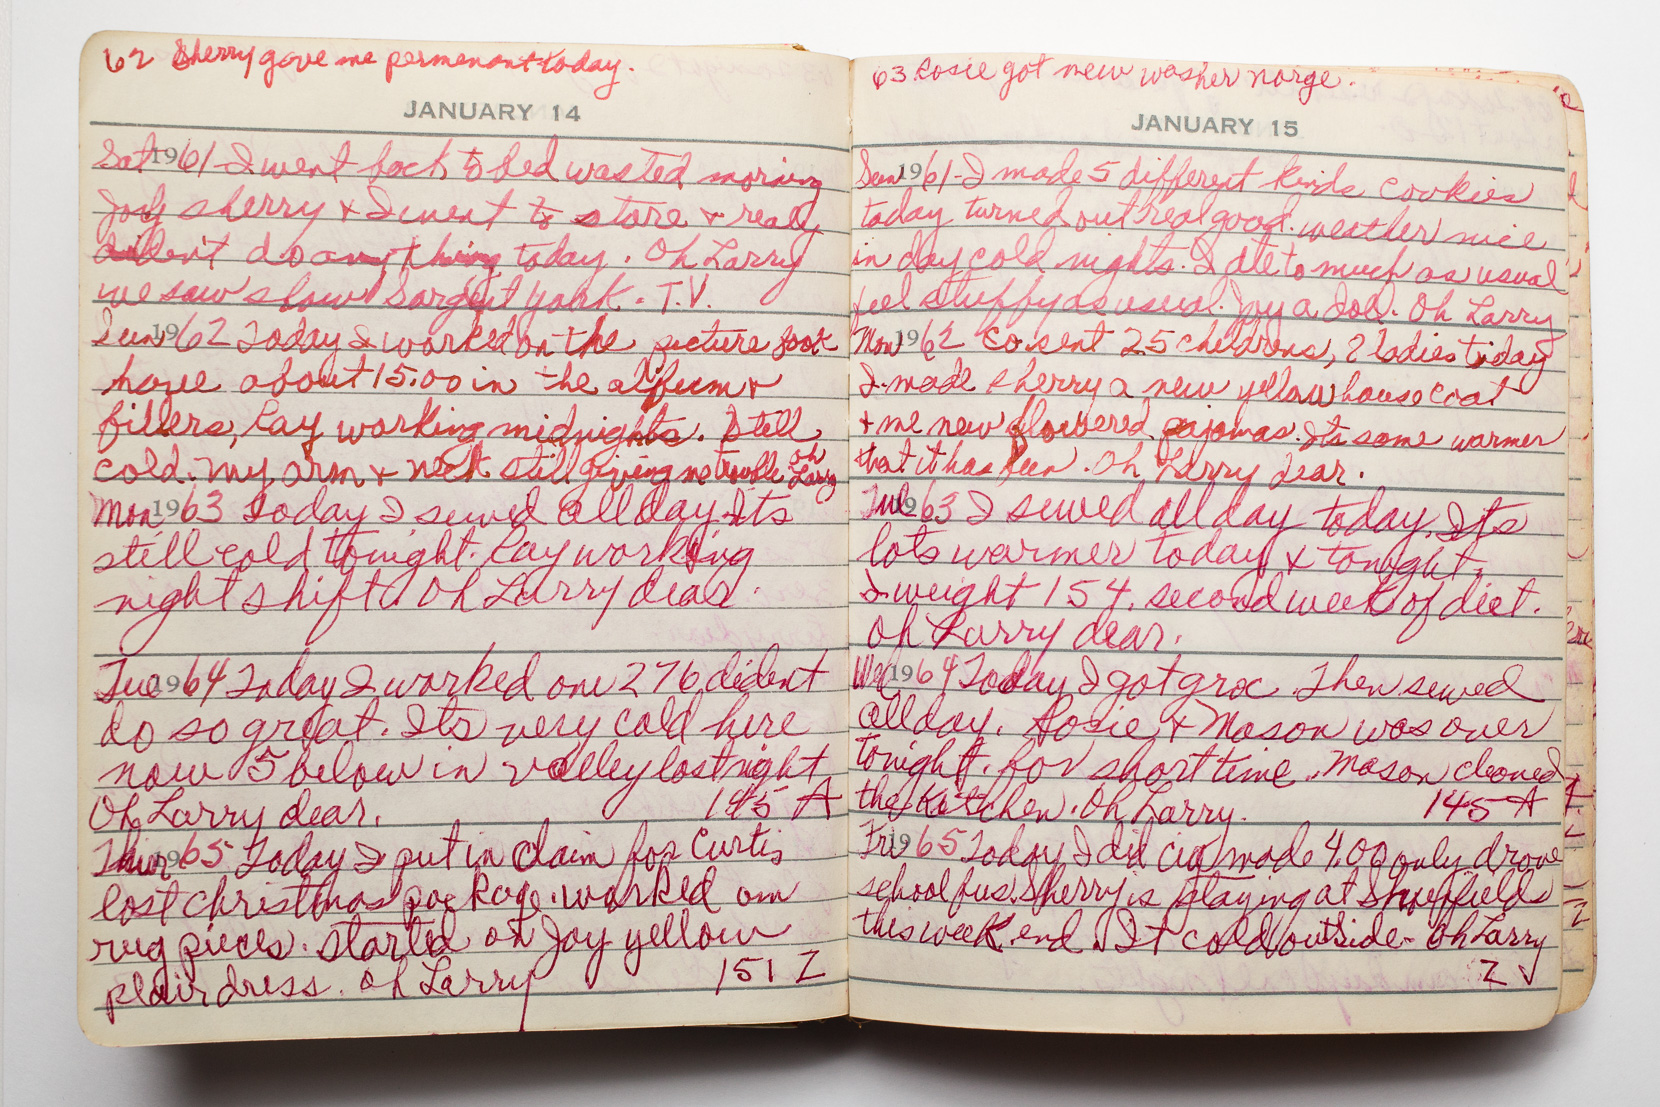 62 Sherry gave me permenant today.
JANUARY 14
Sat 1961- I went back to bed wasted morning
Joy sherry & I went to store & really
dident do any thing today. Oh Larry
we saw show Sargent york. T.V.
Sun 1962 Today I worked on the picture book
have about 15.00 in the alfeum &
fillers, Ray working midnights. Still
cold. My arm & neck still giving me trouble oh Larry
Mon 1963 Today I sewed all day. Its
still cold tonight. Ray working
night shift. Oh Larry dear.
Tue 1964 Today I worked on 276 dident
do so great. Its very cold here
now 5 below in valley last night
Oh Larry dear. 145 A
Thur 1965 Today I put in claim for Curtis
lost christmas package. worked on
rug pieces. started on Joy yellow
plair dress. Oh Larry 151 Z
63 Rosie got new washer norge.
JANUARY 15
Sun 1961- I made 5 different kinds cookies
today turned out real good. weather nice
in day cold nights. I ate to much as usual
feel stuffy as usual. Joy a doll. Oh Larry
Mon 1962 Co. sent 25 childrens, 2 ladies today
I made sherry a new yellow house coat
& me new flowered pajamas. Its some warmer
that it has been. Oh Larry dear.
Tue 1963 I sewed all day today. Its
lots warmer today & tonight.
I weight 154. second week of diet.
Oh Larry dear.
Wed 1964 Today I got groc. Then sewed
all day. Rosie & Mason was over
tonight. for short time. Mason cleaned
the kitchen. Oh Larry. 145 A
Fri 1965 Today I did cig made 4.00 only drove
school bus. Sherry is staying at Sheffields
this week end. It cold outside- Oh Larry
Z ✓